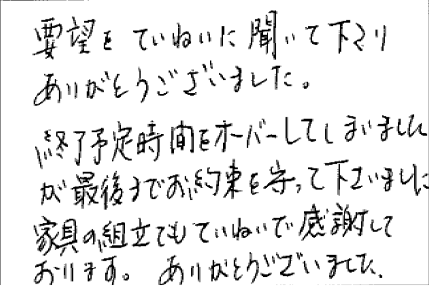 要望をていねいに聞いて下さり
ありがとうございました。
終了予定時間をオーバーしてしまいました
が最後までお約束を守って下さいました
家具の組立てもていねいで感謝して
おります。ありがとうございました。